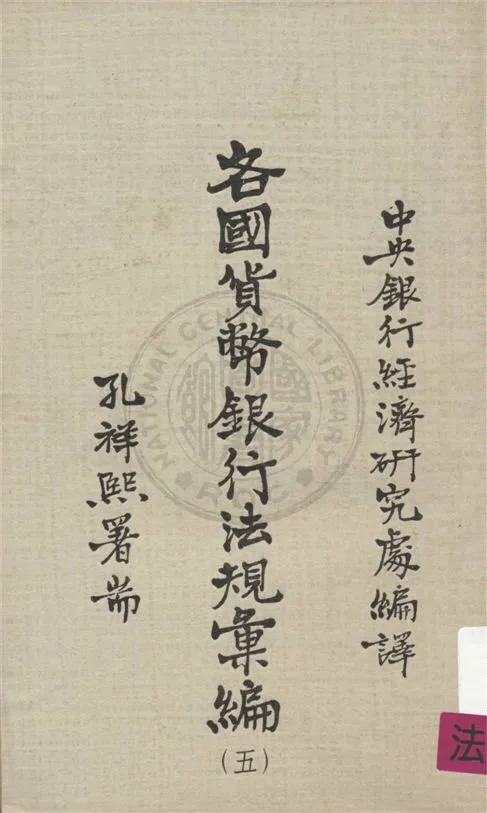 中央銀行經濟研究處編譯
各國貨幣銀行法規彙編
(五)
孔祥熙署耑
法
NATIONAL CENTRAL LIBRARY
R.O.C.